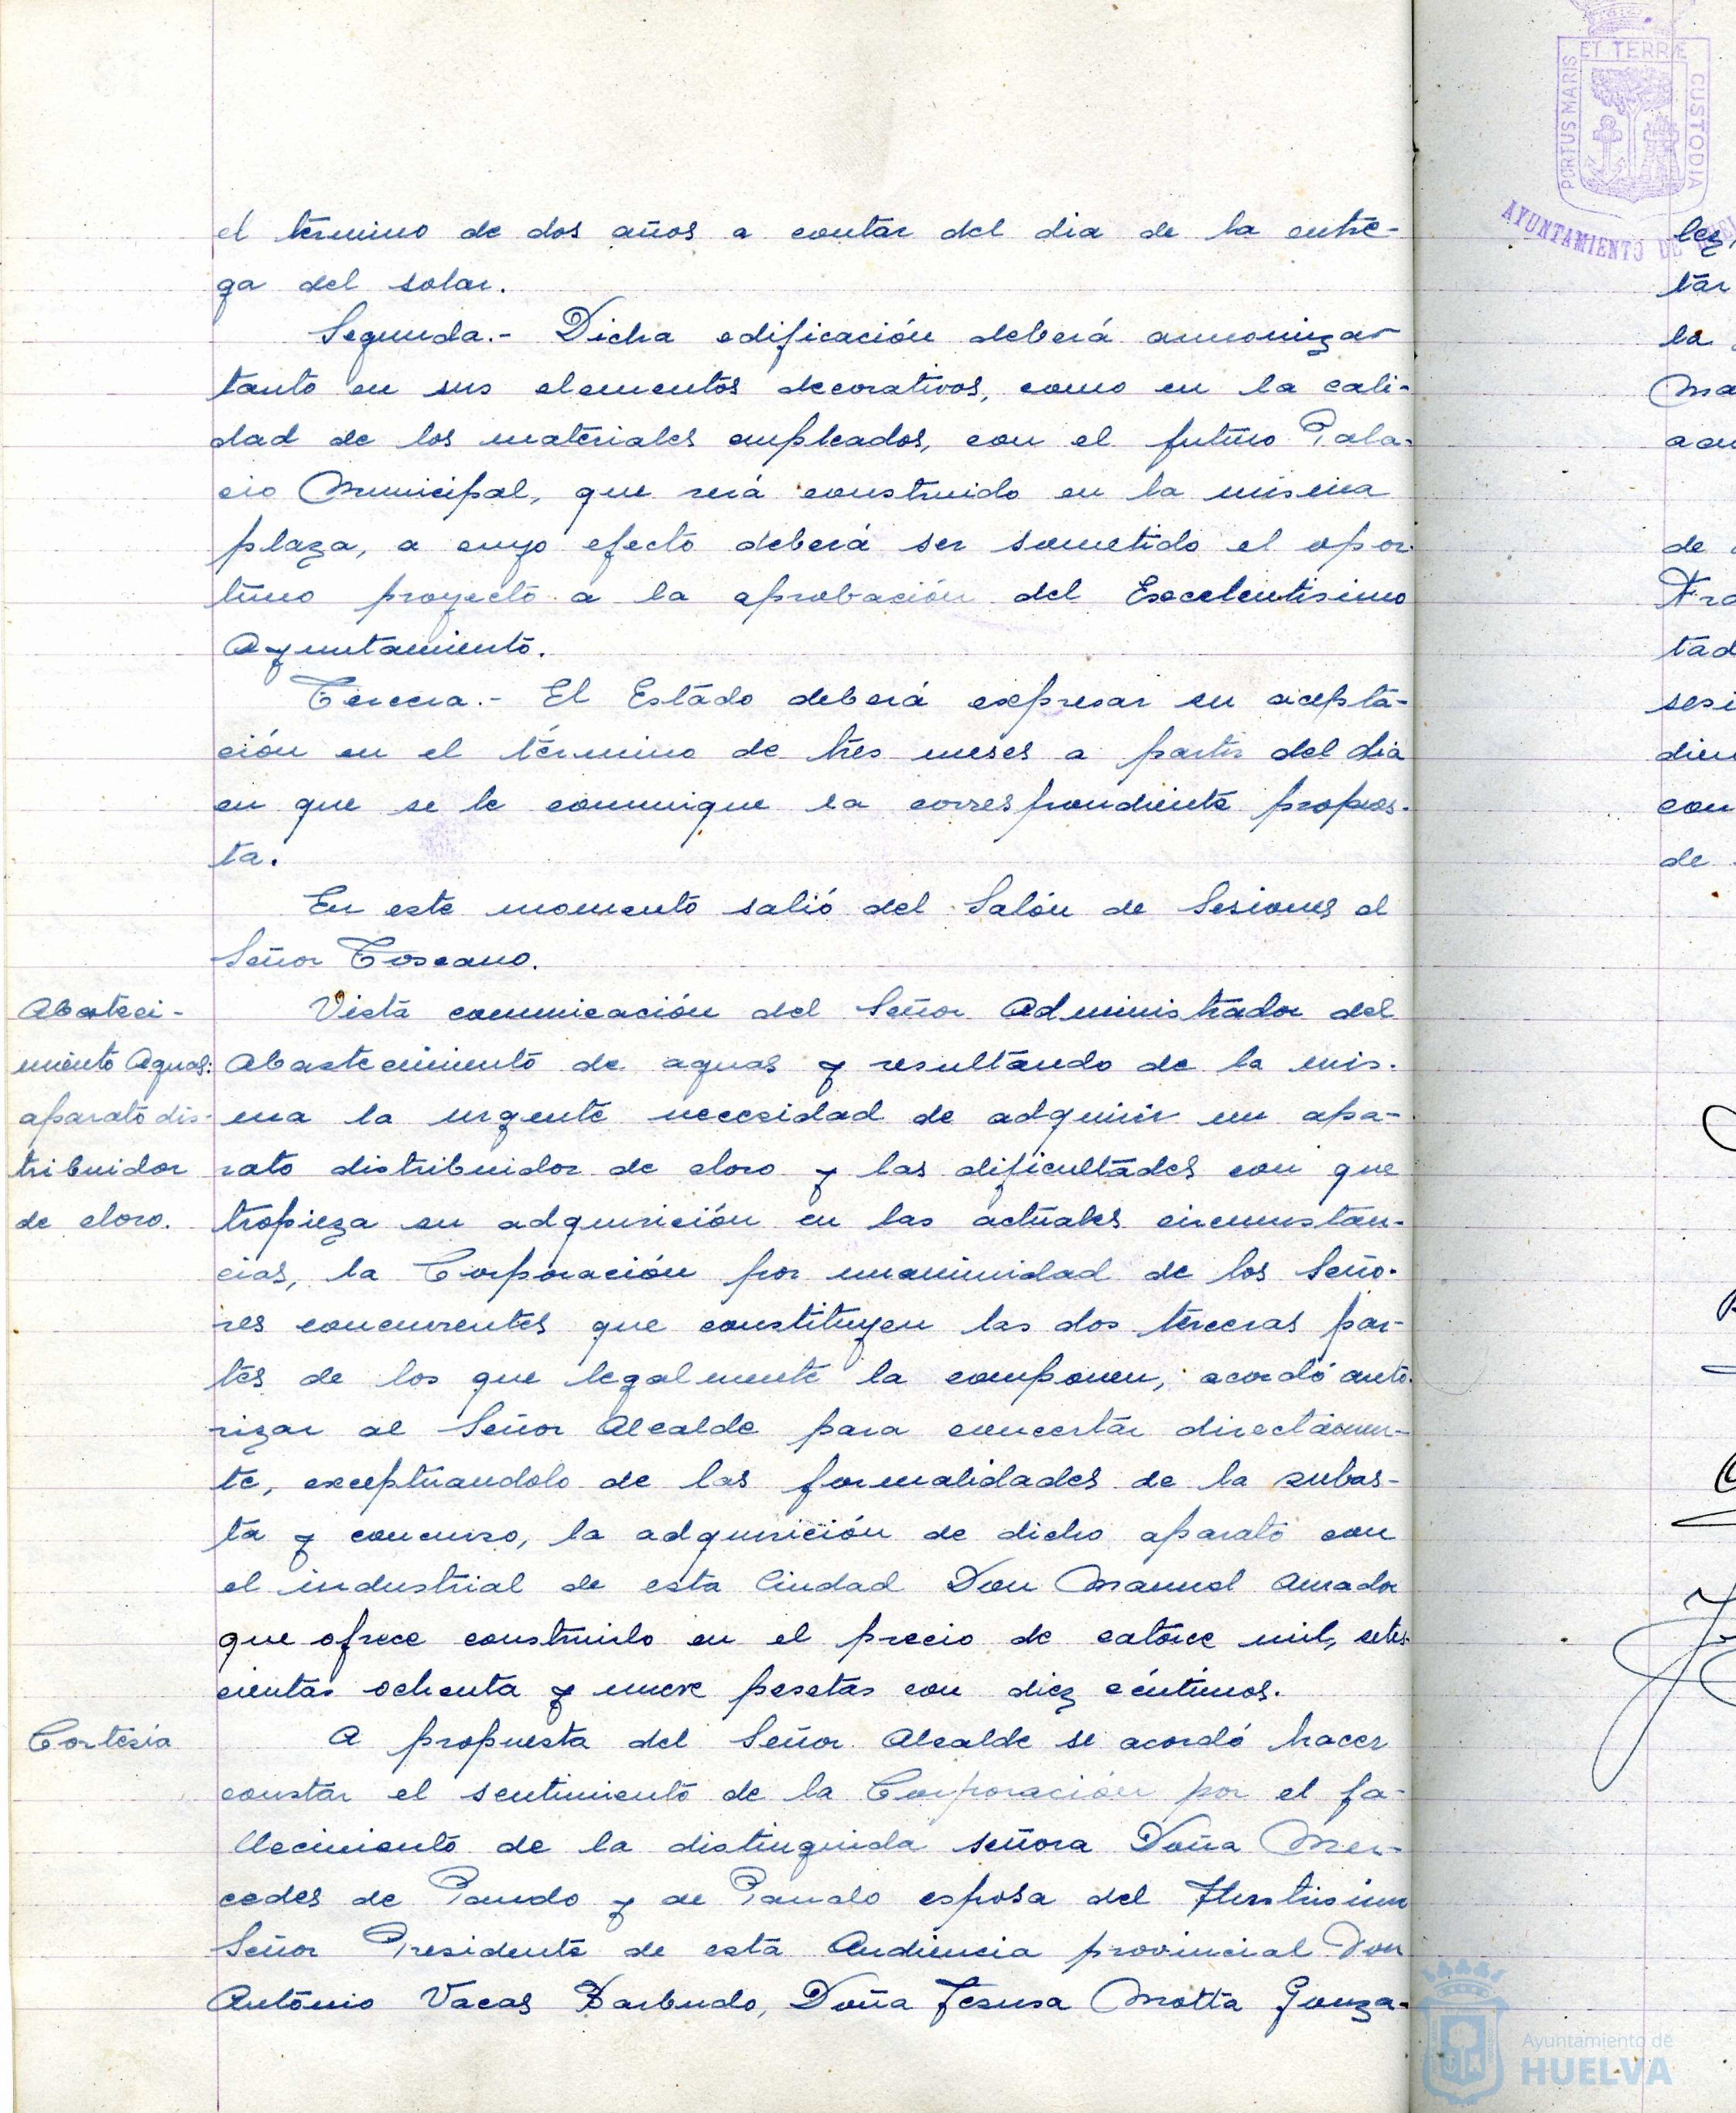 el término de dos años a contar del dia de la entre-
ga del solar.
Segunda.- Dicha edificación deberá armonizar
tanto en sus elementos decorativos, como en la cali-
dad de los materiales empleados, con el futuro Pala-
cio Municipal, que será construido en la misma
plaza, a cuyo efecto deberá ser sometido el opor-
tuno proyecto a la aprobación del Excelentisimo
Ayuntamiento.
Tercera.- El Estado deberá expresar su acepta-
ción en el término de tres meses a partir del dia
en que se le comunique la correspondiente propues-
ta.
En este momento salió del Salón de Sesiones el
Señor Toscano.
Abasteci-
miento Aguas:
aparato dis-
tribuidor
de cloro.
Vista comunicación del Señor Administrador del
Abastecimiento de aguas y resultando de la mis-
ma la urgente necesidad de adquirir un apa-
rato distribuidor de cloro y las dificultades con que
tropieza su adquisición en las actuales circunstan-
cias, la Corporación por unanimidad de los Seño-
res concurrentes que constituyen las dos terceras par-
tes de los que legalmente la componen, acordó auto-
rizar al Señor Alcalde para concertar directamen-
te, exceptuandolo de las formalidades de la subas-
ta y concurso, la adquisición de dicho aparato con
el industrial de esta Ciudad Don Manuel Amador
que ofrece construirlo en el precio de catorce mil, setes-
cientas ochenta y nueve pesetas con diez céntimos.
Cortesía
A propuesta del Señor Alcalde se acordó hacer
constar el sentimiento de la Corporación por el fa-
llecimiento de la distinguida señora Doña Mer-
cedes de Pando y de Pando esposa del Ilustrisimo
Señor Presidente de esta Audiencia provincial Don
Antonio Vacas Barbudo, Doña Jesusa Motta Gonza-
PORTUS MARIS ET TERRÆ CUSTODIA
AYUNTAMIENTO DE
lez,
tar
la
Ma
acu
de
Fra
tad
sesi
dien
con
de
Ayuntamiento de
HUELVA